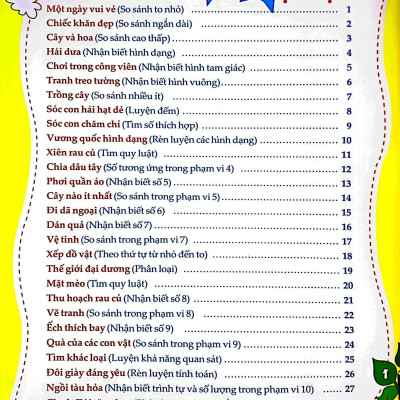 Một ngày vui vẻ (So sánh to nhỏ) 1
Chiếc khăn đẹp (So sánh ngắn dài) 2
Cây và hoa (So sánh cao thấp) 3
Hái dưa (Nhận biết hình dạng) 4
Chơi trong công viên (Nhận biết hình tam giác) 5
Tranh treo tường (Nhận biết hình vuông) 6
Trồng cây (So sánh nhiều ít) 7
Sóc con hái hạt dẻ (Luyện đếm) 8
Sóc con chăm chỉ (Tìm số thích hợp) 9
Vương quốc hình dạng (Rèn luyện các hình dạng) 10
Xiên rau củ (Tìm quy luật) 11
Chia dâu tây (Số tương ứng trong phạm vi 4) 12
Phơi quần áo (Nhận biết số 5) 13
Cây nào ít nhất (So sánh trong phạm vi 5) 14
Đi dã ngoại (Nhận biết số 6) 15
Dán quả (Nhận biết số 7) 16
Vệ tinh (So sánh trong phạm vi 7) 17
Xếp đồ vật (Theo thứ tự từ nhỏ đến to) 18
Thế giới đại dương (Phân loại) 19
Mặt mèo (Tìm quy luật) 20
Thu hoạch rau củ (Nhận biết số 8) 21
Vẽ tranh (So sánh trong phạm vi 8) 22
Ếch thích bay (Nhận biết số 9) 23
Quà của các con vật (So sánh trong phạm vi 9) 24
Tìm khác loại (Luyện khả năng quan sát) 25
Đôi giày đáng yêu (Rèn luyện tính toán) 26
Ngồi tàu hỏa (Nhận biết trình tự và số lượng trong phạm vi 10) 27
1